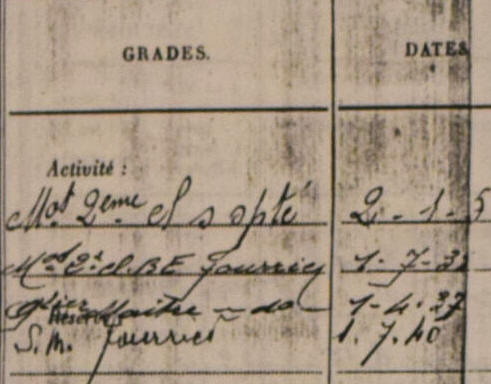 GRADES. DATES
Activité :
Mot 2eme Cl s spté 2 - 1 - 5
Mot 2e Cl. B.E. fourrier 1 - 7 - 3
Qtier Maitre - do - 1 - 4 - 37
S.M. fourrier 1. 7. 40